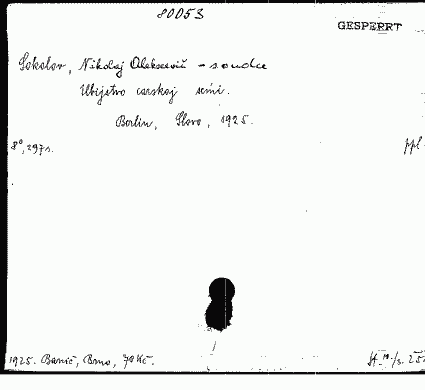 80053
GESPERRT
Sokolov, Nikolaj Aleksěevič - soudce
Ubijstvo carskoj semi.
Berlin, Slovo, 1925.
8°, 297 s.
ppl.
1925. Barvič, Brno, 70 Kč.